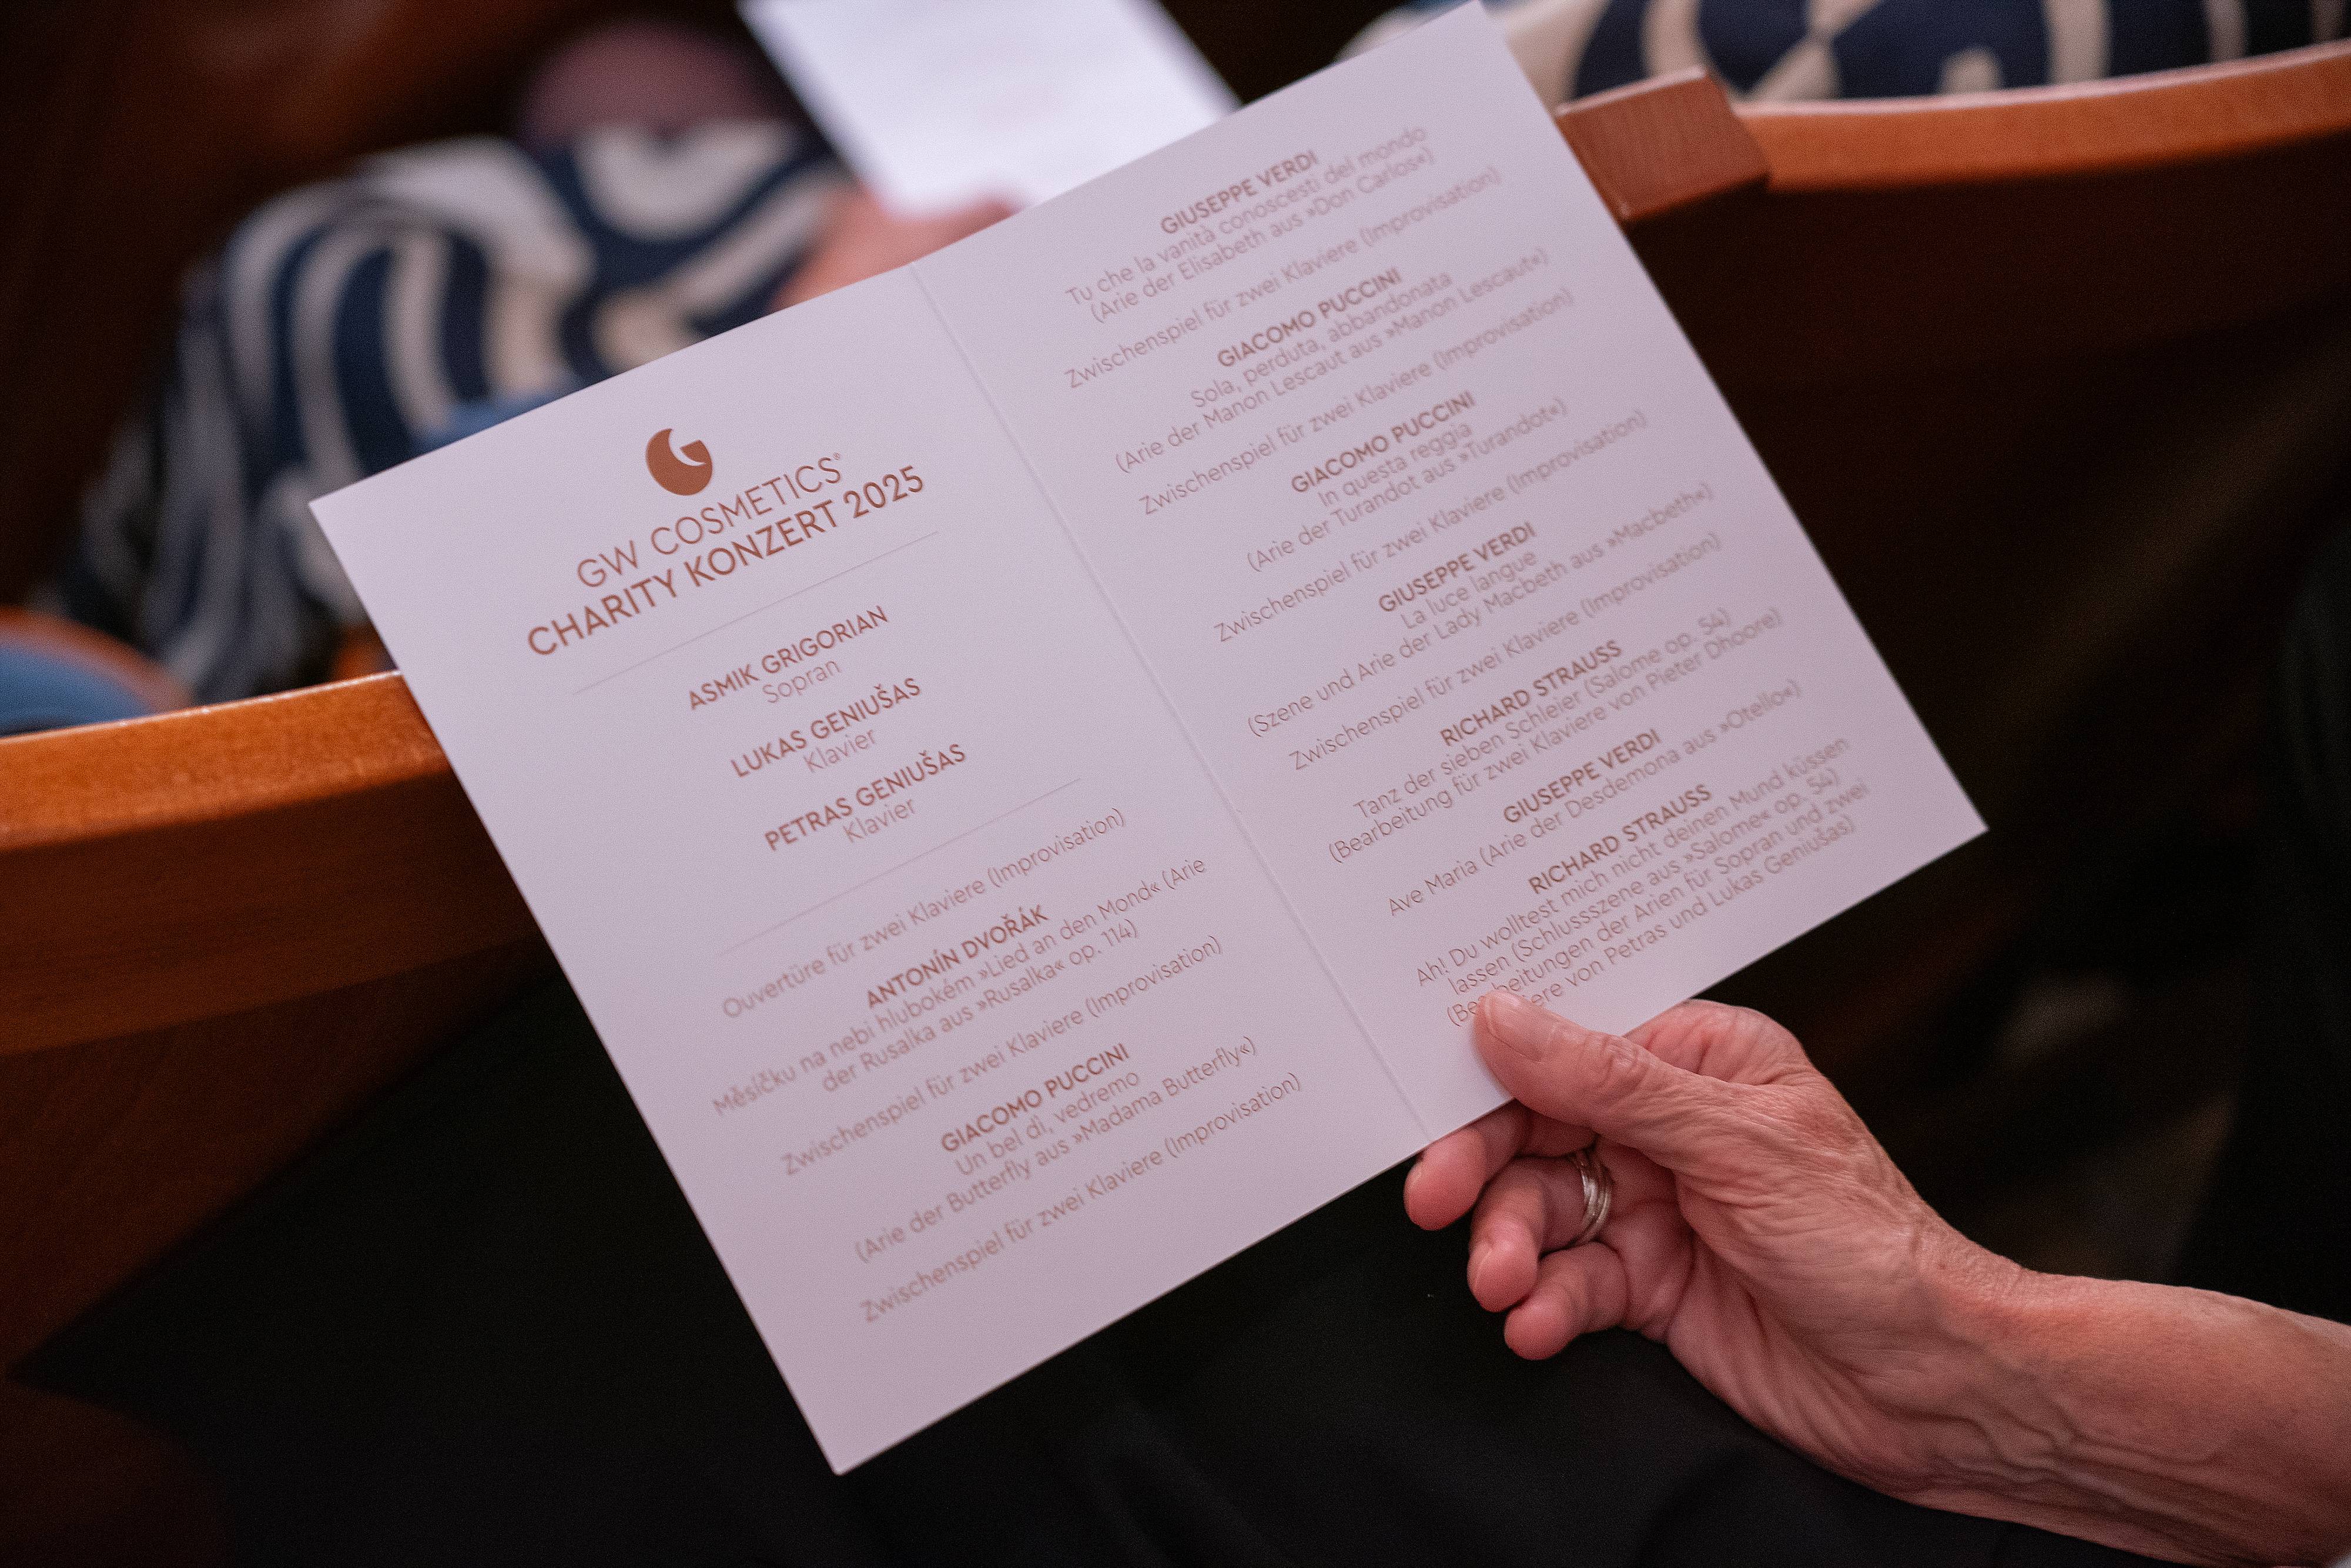 GW COSMETICS®
CHARITY KONZERT 2025
ASMIK GRIGORIAN
Sopran
LUKAS GENIUŠAS
Klavier
PETRAS GENIUŠAS
Klavier
Ouvertüre für zwei Klaviere (Improvisation)
ANTONÍN DVOŘÁK
Měsíčku na nebi hlubokém »Lied an den Mond« (Arie
der Rusalka aus »Rusalka« op. 114)
Zwischenspiel für zwei Klaviere (Improvisation)
GIACOMO PUCCINI
Un bel dì, vedremo
(Arie der Butterfly aus »Madama Butterfly«)
Zwischenspiel für zwei Klaviere (Improvisation)
GIUSEPPE VERDI
Tu che la vanità conoscesti del mondo
(Arie der Elisabeth aus »Don Carlos«)
Zwischenspiel für zwei Klaviere (Improvisation)
GIACOMO PUCCINI
Sola, perduta, abbandonata
(Arie der Manon Lescaut aus »Manon Lescaut«)
Zwischenspiel für zwei Klaviere (Improvisation)
GIACOMO PUCCINI
In questa reggia
(Arie der Turandot aus »Turandot«)
Zwischenspiel für zwei Klaviere (Improvisation)
GIUSEPPE VERDI
La luce langue
(Szene und Arie der Lady Macbeth aus »Macbeth«)
Zwischenspiel für zwei Klaviere (Improvisation)
RICHARD STRAUSS
Tanz der sieben Schleier (Salome op. 54)
(Bearbeitung für zwei Klaviere von Pieter Dhoore)
GIUSEPPE VERDI
Ave Maria (Arie der Desdemona aus »Otello«)
RICHARD STRAUSS
Ah! Du wolltest mich nicht deinen Mund küssen
lassen (Schlussszene aus »Salome« op. 54)
der Arien für Sopran und zwei
von Petras und Lukas Geniušas)